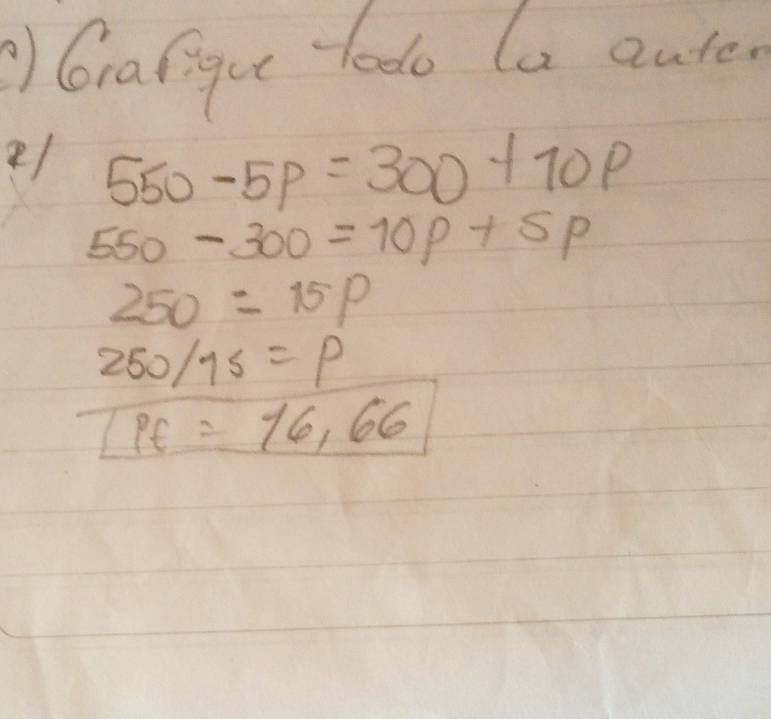 c) Grafique todo la anter
2/
550 - 5P = 300 + 10P
550 - 300 = 10P + 5P
250 = 15P
250/15 = P
PE = 16,66